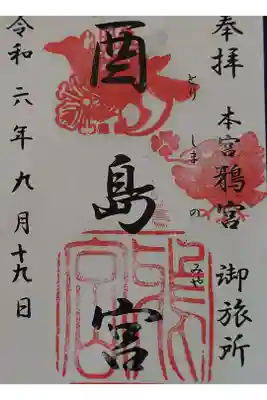 奉拝
本宮鴉宮 御旅所
とりしまのみや
酉島宮
令和六年九月十九日